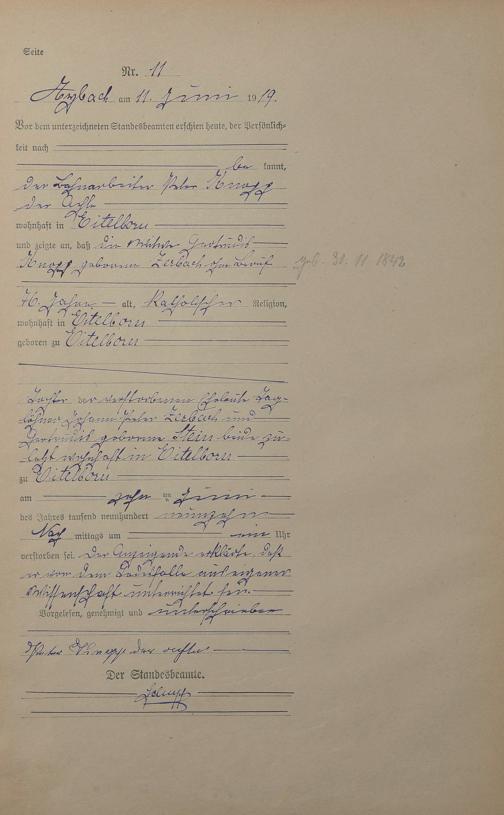 Seite
Nr. 11
Arzbach am 11. Juni 1919.
Vor dem unterzeichneten Standesbeamten erschien heute, der Persönlich-
keit nach
be kannt,
der Bahnarbeiter Peter Knopp
der Achte
wohnhaft in Eitelborn
und zeigte an, daß die Witwe Gertrud
Knopp geborene Zerbach ohne Beruf
geb. 30. 11. 1842
76 Jahre alt, katholischer Religion,
wohnhaft in Eitelborn
geboren zu Eitelborn
Tochter der verstorbenen Eheleute Tag-
löhner Johann Peter Zerbach und
Gertrud geborene Stein beide zu-
letzt wohnhaft in Eitelborn
zu Eitelborn
am zehn ten Juni
des Jahres tausend neunhundert neunzehn
Nach mittags um ein Uhr
verstorben sei. Der Anzeigende erklärte, daß
er von dem Todesfalle aus eigener
Wissenschaft unterrichtet sei.
Vorgelesen, genehmigt und unterschrieben
Peter Knopp der achte
Der Standesbeamte.